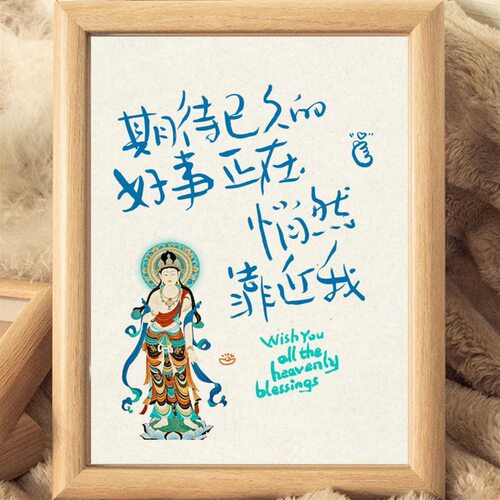 期待已久的
好事正在
悄然
靠近我
Wish You
all the
heavenly
blessings